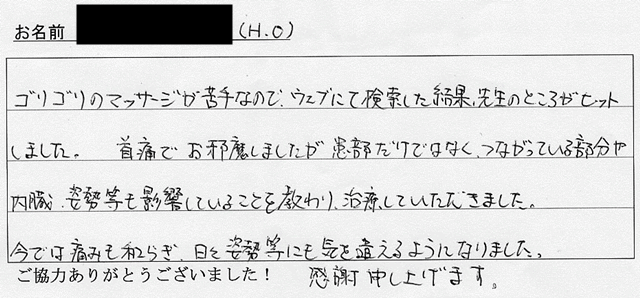 お名前 (H.O)
ゴリゴリのマッサージが苦手なので、ウェブにて検索した結果、先生のところがヒット
しました。 首痛でお邪魔しましたが患部だけではなく、つながっている部分や
内臓、姿勢等も影響していることを教わり、治療していただきました。
今では痛みも和らぎ、日々姿勢等にも気を遣えるようになりました。
ご協力ありがとうございました! 感謝申し上げます。